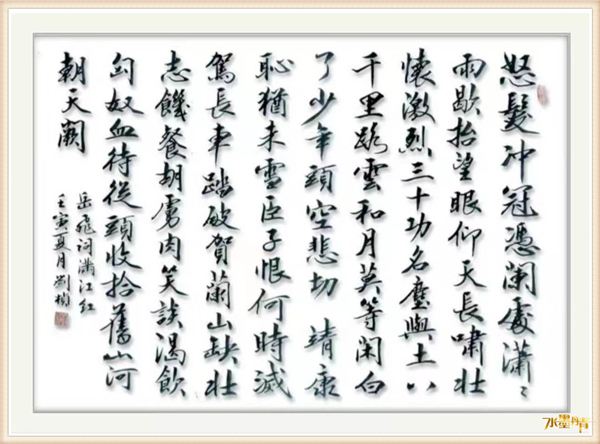 怒髮冲冠憑闌處瀟〻
雨歇抬望眼仰天長嘯壯
懷激烈三十功名塵與土八
千里路雲和月莫等闲白
了少年頭空悲切 靖康
恥猶未雪臣子恨何時滅
駕長車踏破賀蘭山缺壯
志饑餐胡虜肉笑談渴飲
匈奴血待從頭收拾舊山河
朝天闕
岳飛詞滿江紅
壬寅夏月劉楠
水墨丹青